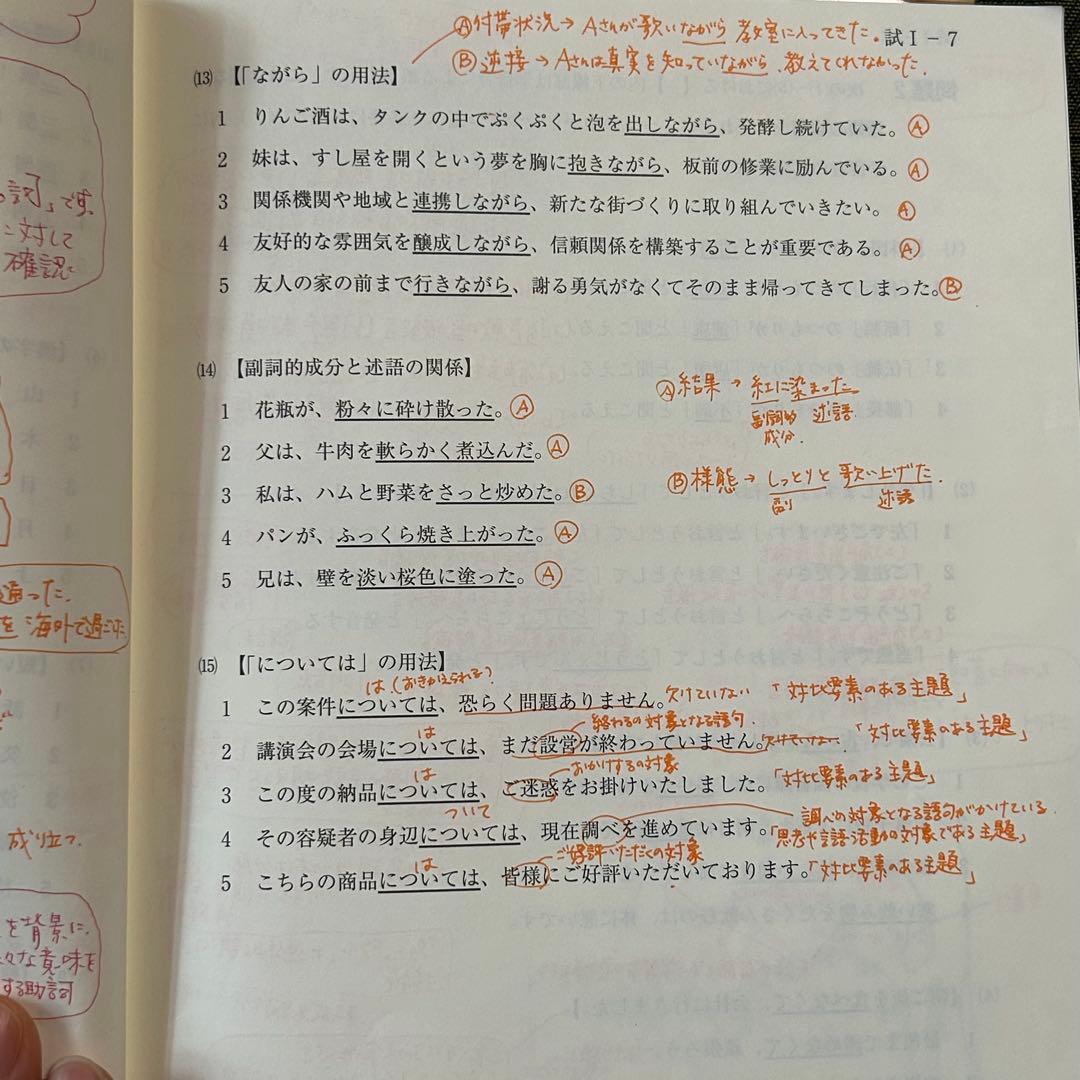 Ⓐ付帯状況→Aさんが歌いながら 教室に入ってきた。
試Ⅰ-7
Ⓑ逆接→Aさんは真実を知っていながら、教えてくれなかった。
⒀ 【「ながら」の用法】
1 りんご酒は、タンクの中でぷくぷくと泡を出しながら、発酵し続けていた。Ⓐ
2 妹は、すし屋を開くという夢を胸に抱きながら、板前の修業に励んでいる。Ⓐ
3 関係機関や地域と連携しながら、新たな街づくりに取り組んでいきたい。Ⓐ
4 友好的な雰囲気を醸成しながら、信頼関係を構築することが重要である。Ⓐ
5 友人の家の前まで行きながら、謝る勇気がなくてそのまま帰ってきてしまった。Ⓑ
⒁ 【副詞的成分と述語の関係】
Ⓐ結果→紅に染まった
副詞的成分. 述語
1 花瓶が、粉々に砕け散った。Ⓐ
2 父は、牛肉を軟らかく煮込んだ。Ⓐ
Ⓑ様態→しっとりと歌い上げた.
副 述語
3 私は、ハムと野菜をさっと炒めた。Ⓑ
4 パンが、ふっくら焼き上がった。Ⓐ
5 兄は、壁を淡い桜色に塗った。Ⓐ
⒂ 【「については」の用法】
は(おきかえられる)
1 この案件については、恐らく問題ありません。欠けていない「対比要素のある主題」
は 終わるの対象となる語句.
2 講演会の会場については、まだ設営が終わっていません。欠けていない「対比要素のある主題」
は おかけするの対象
3 この度の納品については、ご迷惑をお掛けいたしました。「対比要素のある主題」
ついて 調べの対象となる語句がかけている.
4 その容疑者の身辺については、現在調べを進めています。「思考や言語活動の対象である主題」
は ご好評いただくの対象
5 こちらの商品については、皆様にご好評いただいております。「対比要素のある主題」
詞」です
に対して
確認
通った.
を海外で過ごした
成り立つ.
を背景に.
々な意味を
する助詞